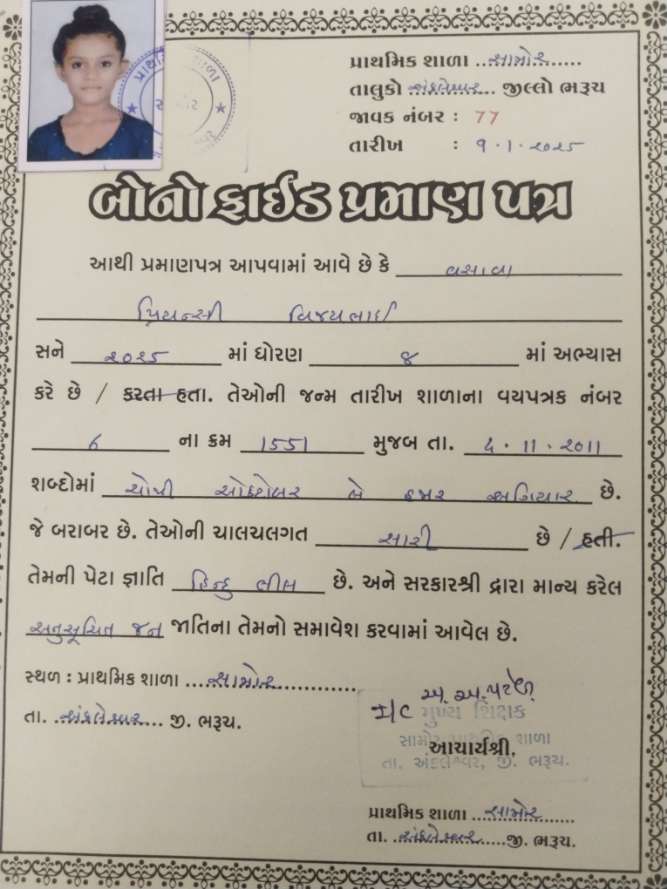 પ્રાથમિક શાળા ..સામોર......
તાલુકો .અંકલેશ્વર... જીલ્લો ભરૂચ
જાવક નંબર : 77
તારીખ : ૧.1.૨૦૨૫
બોનોફાઈડ પ્રમાણ પત્ર
આથી પ્રમાણપત્ર આપવામાં આવે છે કે વસાવા
પ્રિયન્સી વિજયભાઈ
સને ૨૦૨૫ માં ધોરણ ૪ માં અભ્યાસ
કરે છે / કરતા હતા. તેઓની જન્મ તારીખ શાળાના વયપત્રક નંબર
6 ના ક્રમ 1551 મુજબ તા. 11 . 2011
શબ્દોમાં બે હજાર અગિયાર છે.
જે બરાબર છે. તેઓની ચાલચલગત સારી છે / હતી.
તેમની પેટા જ્ઞાતિ હિન્દુ ભીલ છે. અને સરકારશ્રી દ્વારા માન્ય કરેલ
અનુસૂચિત જન જાતિના તેમનો સમાવેશ કરવામાં આવેલ છે.
સ્થળ : પ્રાથમિક શાળા ...સામોર................
તા. ..અંકલેશ્વર.... જી. ભરૂચ.
અ. અ. પટેલ
I/C મુખ્ય શિક્ષક
સામોર પ્રાથમિક શાળા
આચાર્યશ્રી.
તા. અંકલેશ્વર, જી. ભરૂચ.
પ્રાથમિક શાળા ..સામોર........
તા. ..અંકલેશ્વર.....જી. ભરૂચ.